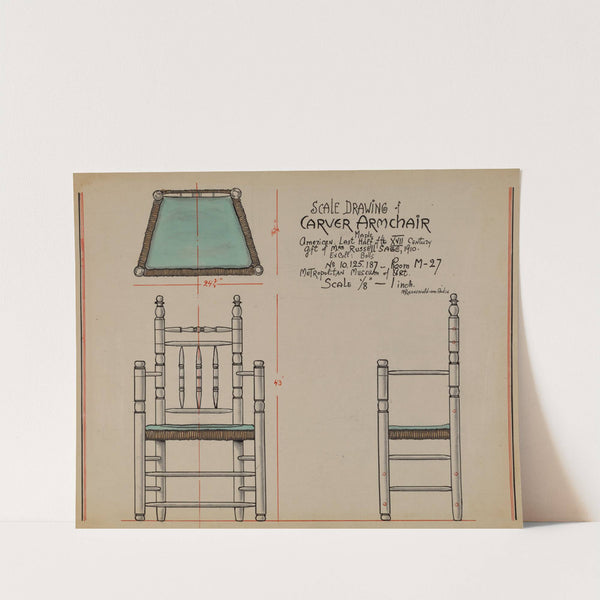 SCALE DRAWING of
CARVER ARMCHAIR
Maple
American, Last Half of the XVII Century
Gift of Mrs Russell SAGE, 1910.
Ex Coll: Bolles
No 10.125.187 – Room M-27
METROPOLITAN MUSEUM of ART.
SCALE 1/8" – 1 inch.
24
43